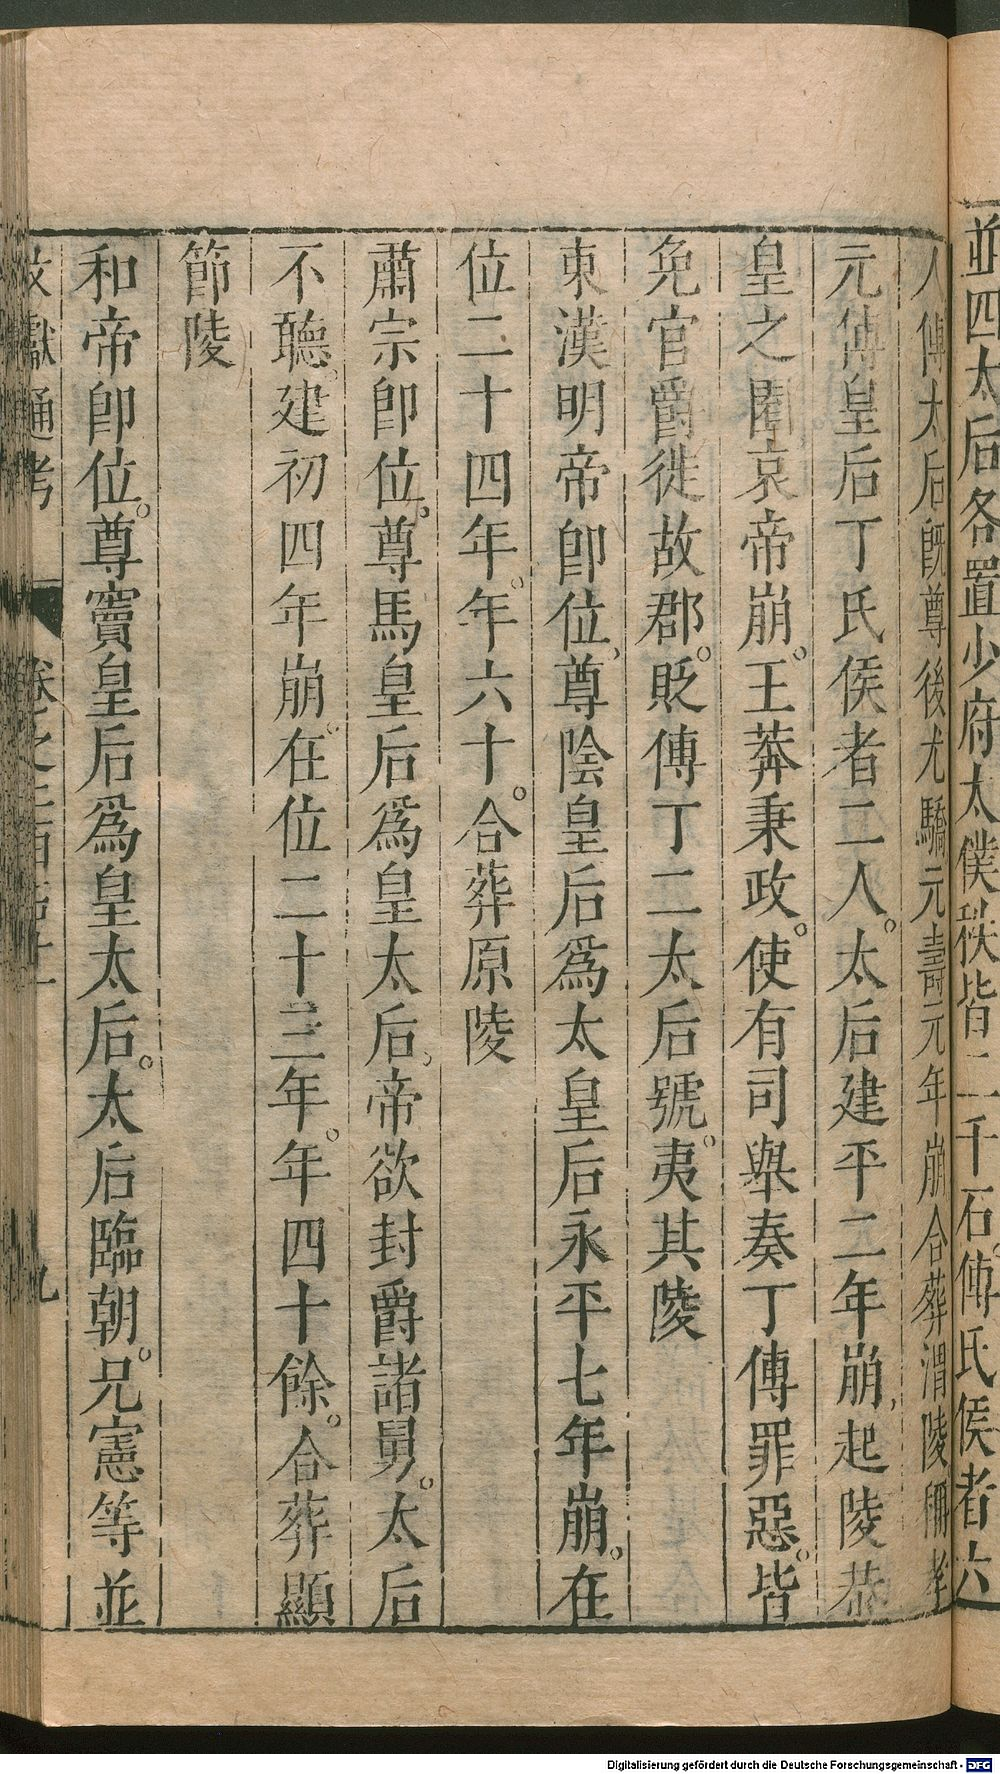 並四太后各置少府太僕秩皆二千石傅氏侯者六
人傅太后旣尊後尤驕元壽元年崩合葬渭陵稱孝
元傅皇后丁氏侯者二人。太后建平二年崩起陵恭
皇之園哀帝崩。王莽秉政。使有司舉奏丁傅罪惡。皆
免官爵徙故郡。貶傅丁二太后號。夷其陵
東漢明帝卽位尊陰皇后爲太皇后永平七年崩。在
位二十四年。年六十。合葬原陵
肅宗卽位。尊馬皇后爲皇太后帝欲封爵諸舅。太后
不聽。建初四年崩。在位二十三年。年四十餘。合葬顯
節陵
和帝卽位。尊竇皇后爲皇太后。太后臨朝。兄憲等並
文獻通考 卷之二百五十一 九
Digitalisierung gefördert durch die Deutsche Forschungsgemeinschaft - DFG